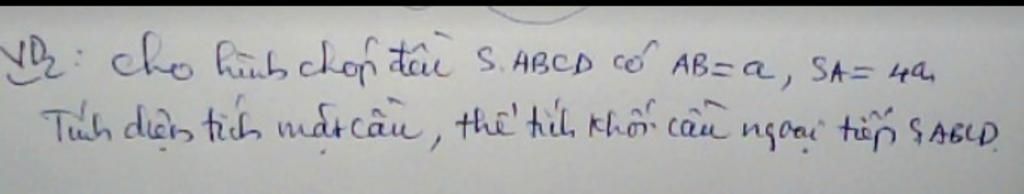 VD2: Cho hình chóp đều S.ABCD có AB=a, SA=4a.
Tính diện tích mặt cầu, thể tích khối cầu ngoại tiếp S.ABCD.